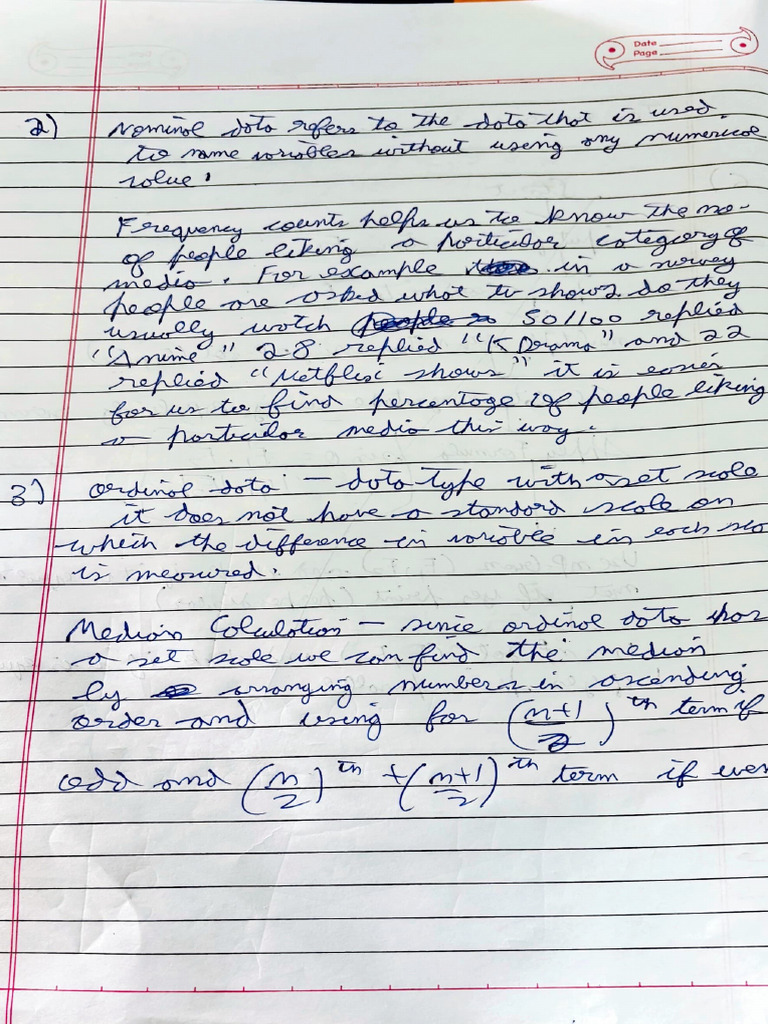 Date
Page
2) Nominal data refers to the data that is used
to name variables without using any numerical
value.
Frequency counts helps us to know the no-
of people liking a particular category of
media. For example in a survey
people are asked what tv shows do they
usually watch 50/100 replied
"Anime" 28 replied "K Drama" and 22
replied "Netflix shows" it is easier
for us to find percentage of people liking
a particular media this way.
3) Ordinal data - data type with a set scale
it does not have a standard scale on
which the difference in variable in each
is measured.
Median Calculation - since ordinal data
a set scale we can find the median
by arranging numbers in ascending
order and using for (n+1/2)th term if
odd and (n/2)th + (n+1/2)th term if even